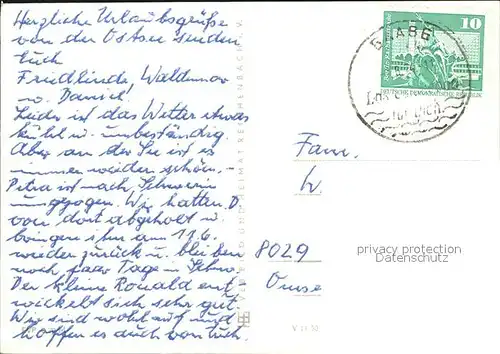 Herzliche Urlaubsgrüße
von der Ostsee senden
Euch
Friedlinde Waldemar
u. Daniel.
Leider ist das Wetter etwas
kühl u. unbeständig.
Aber an der See ist es
immer wieder schön. -
Petra ist nach Schwerin
umgezogen. Wir hatten D.
von dort abgeholt u.
bringen ihn am 11.6.
wieder zurück u. bleiben
noch paar Tage in Schw.
Der kleine Ronald ent-
wickelt sich sehr gut.
Wir sind wohlauf und
hoffen es auch von Euch.
10
DEUTSCHE DEMOKRATISCHE REPUBLIK
Fam.
8029
privacy protection
Datenschutz